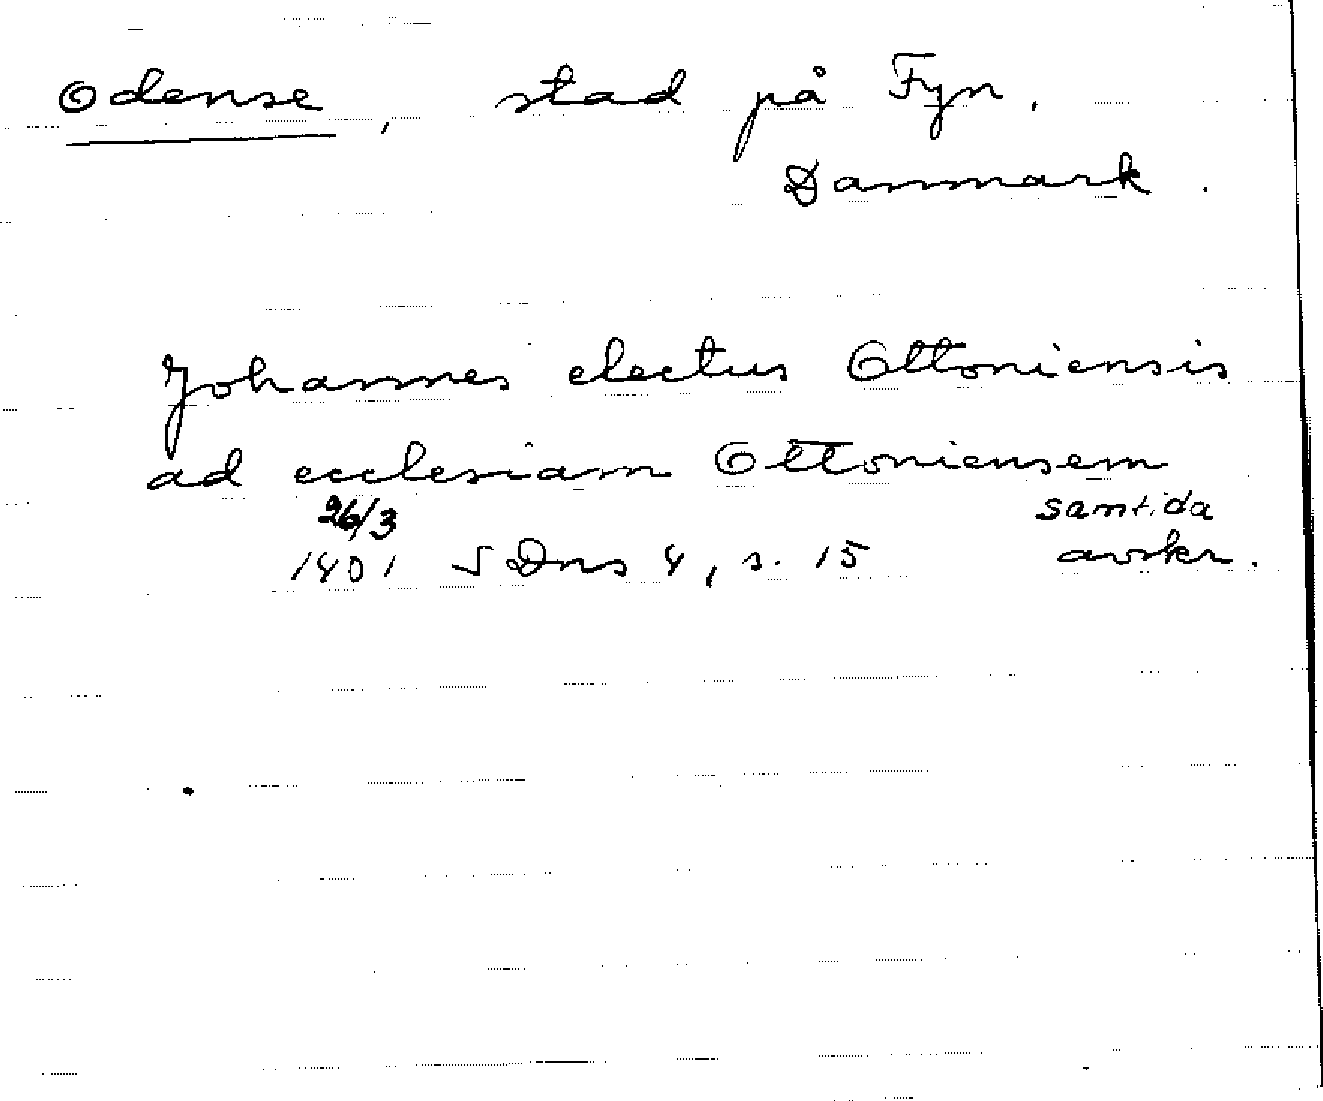 Odense, stad på Fyn.
Danmark.
Johannes electus Ottoniensis
ad ecclesiam Ottoniensem
26/3 samtida
1401 SDns 4, s. 15 avskr.